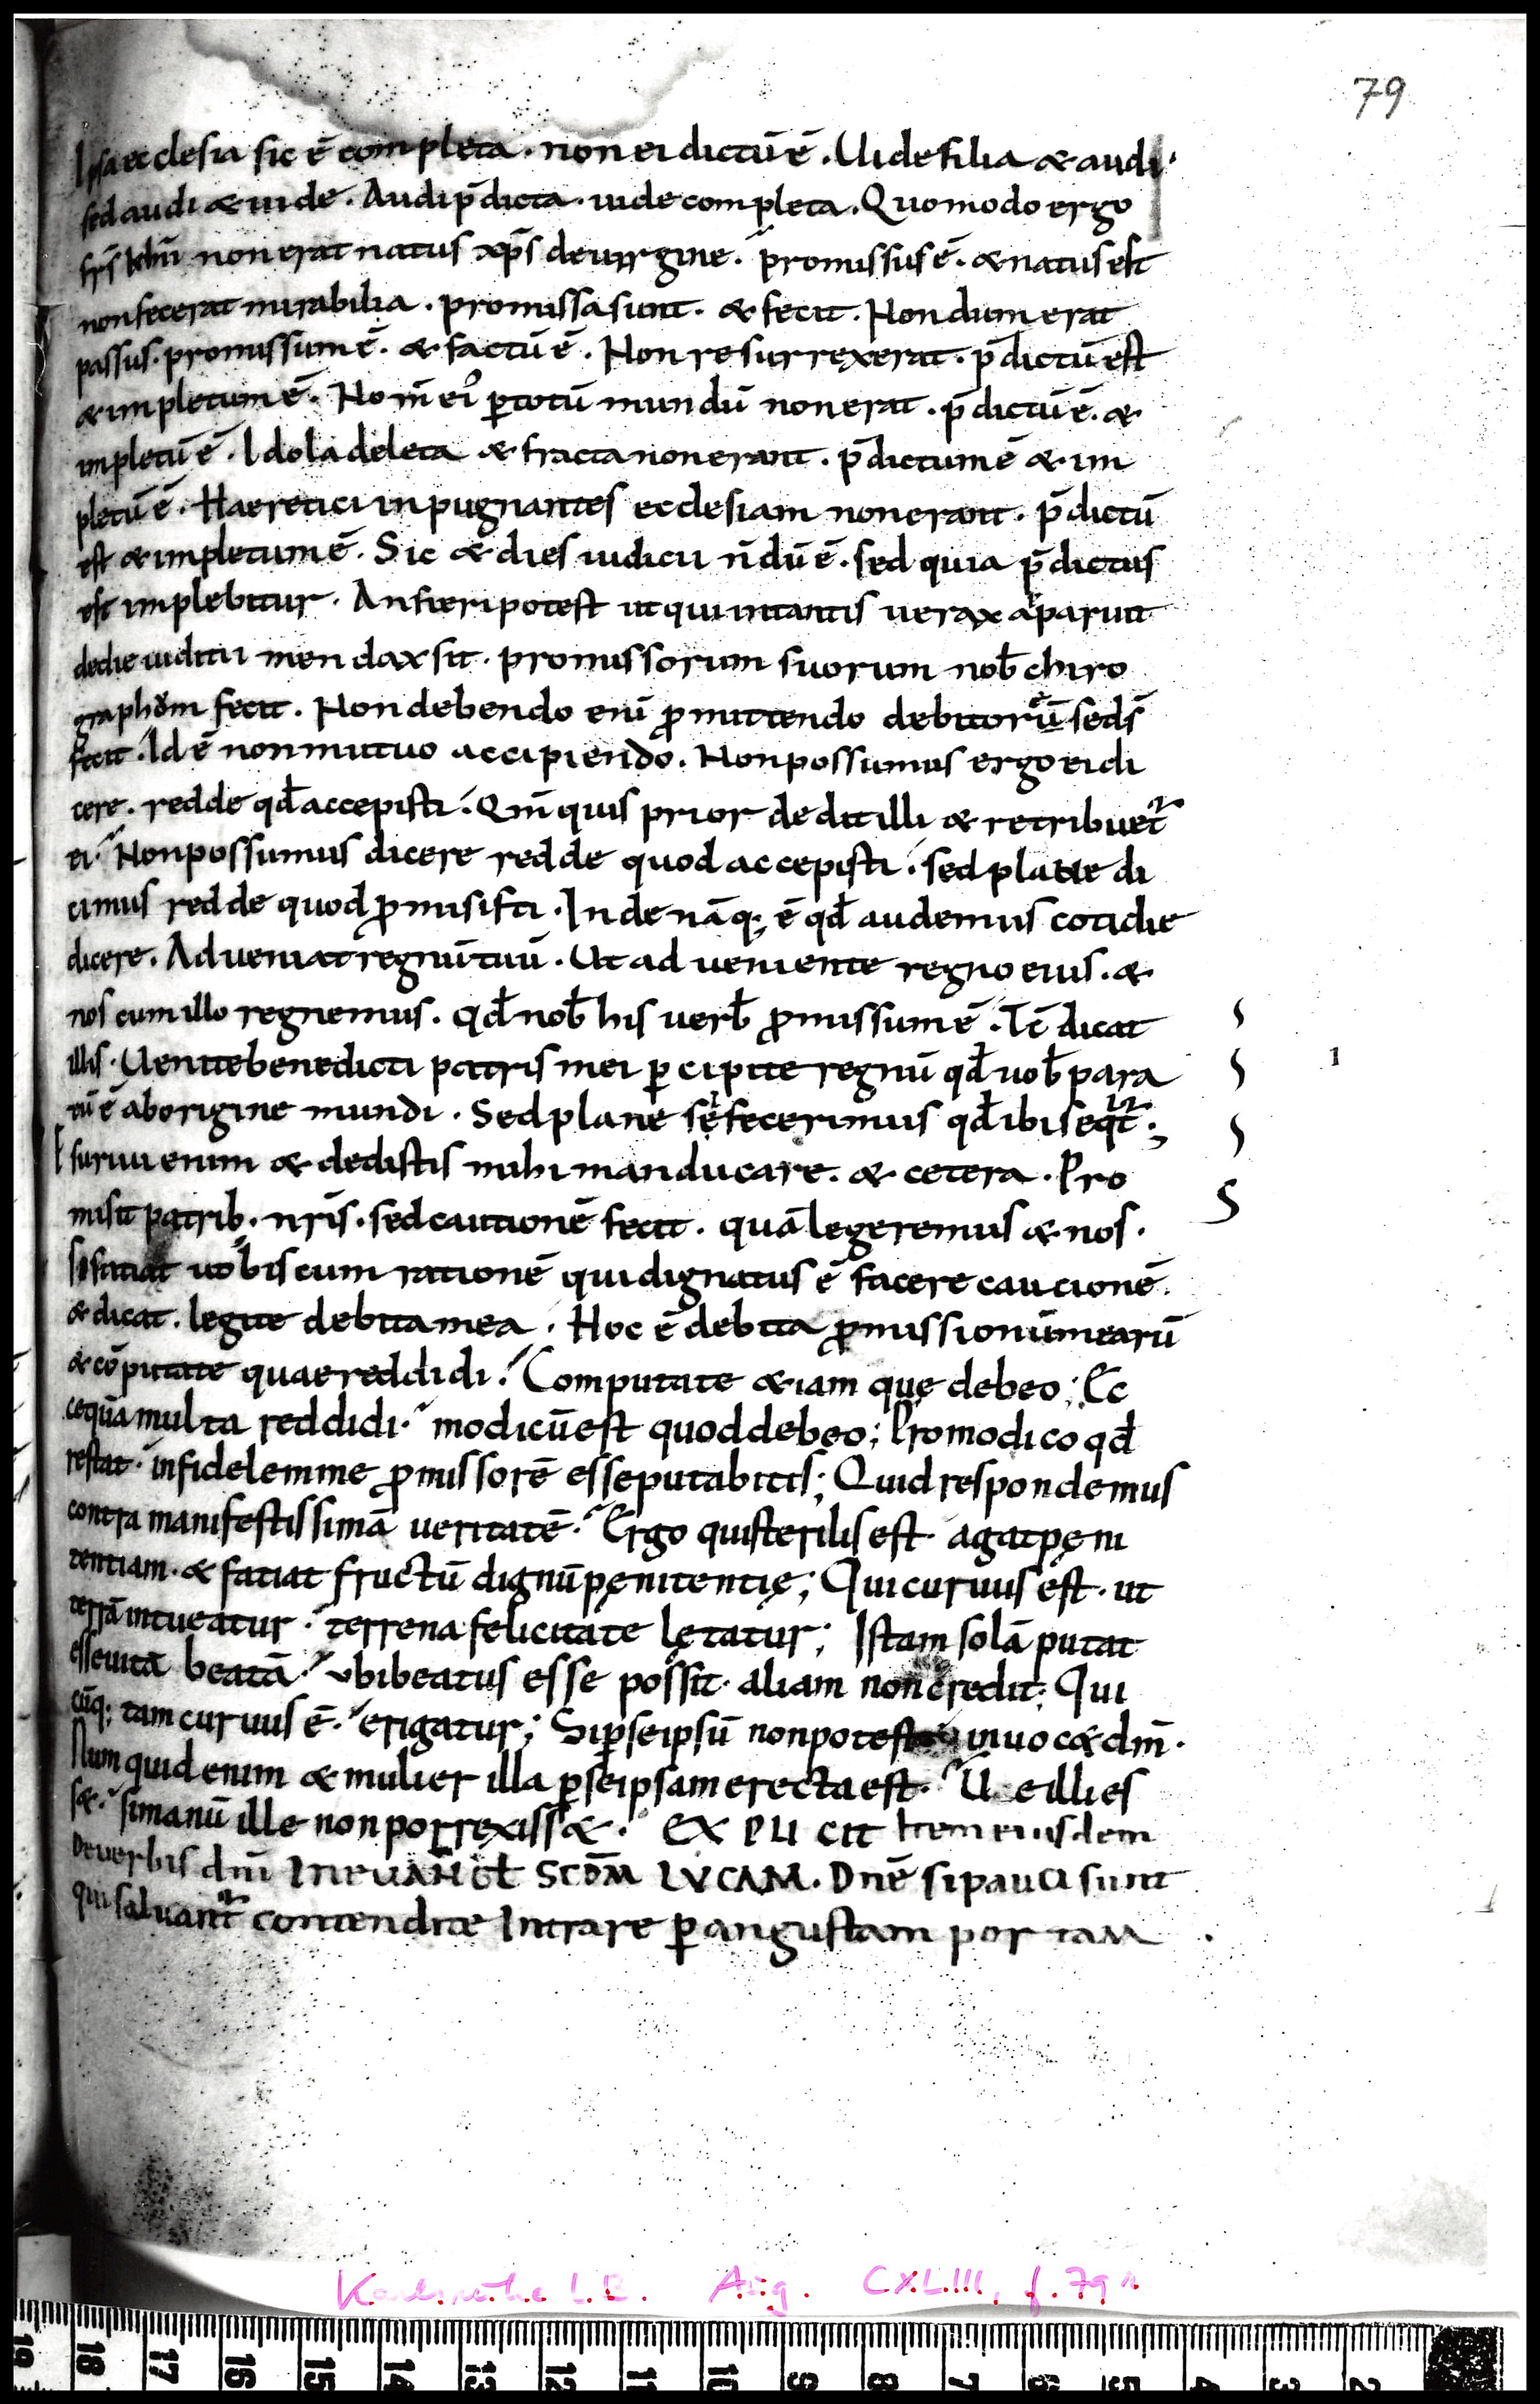 79
Ipsa ecclesia sic ē completa . non ei dictū ē . Uide filia & audi .
sed audi & uide . Audi p̄dicta . uide completa . Quomodo ergo
frs̄ non erat natus xp̄s de uirgine . promissus ē . & natus est
non fecerat mirabilia . promissa sunt . & fecit . Nondum erat
passus . promissum ē . & factū ē . Non resurrexerat . p̄dictū est
& impletum ē . Nom̄ ei᾽ ꝑ totū mundū non erat . p̄dictū ē . &
impletū ē . Idola deleta & fracta non erant . p̄dictum ē & im
pletū ē . Haeretici inpugnantes ecclesiam non erant . p̄dictū
est & impletum ē . Sic & dies iudicii n̄dū ē . sed quia p̄dictus
est implebitur . An fieri potest ut qui in tantis uerax aparuit
de die iudicii mendax sit . promissorum suorum nob̄ chiro
graphom fecit . Non debendo eni᷆ ꝓmittendo debitorū se ds̄
fecit . Id ē non mutuo accipiendo . Non possumus ergo ei di
cere . redde qd̄ accepisti . Qm̄ quis prior dedit illi & retribuet᷑
ei . Non possumus dicere redde quod accepisti . sed plane di
cimus redde quod ꝓmisisti . Inde nāq; ē qd̄ audemus cotidie
dicere . Adueniat regnū tuū . Ut adueniente regno eius . &
nos cum illo regnemus . qd̄ nob̄ his uerb̄ ꝓmissum ē . Tc̄ dicat
illis . Uenite benedicti patris mei ꝑcipite regnū qd̄ uob̄ para
tū ē ab origine mundi . Sed plane se fecerimus qd̄ ibi seqt᷑ .;
Esuriui enim & dedistis mihi manducare . & cetera . Pro
misit patrib; . nr̄is . sed cautionē fecit . quā legeremus & nos .
Si fatiat uobiscum rationē qui dignatus ē facere caucionē .
& dicat . legite debita mea . Hoc ē debita ꝓmissionū mearū
& cōputate quae reddidi . Computate & iam quę debeo ; Ec
ce quā multa reddidi . modicū est quod debeo ; Pro modico qd̄
restat . infidelem me ꝓmissorē esse putabitis ; Quid respondemus
contra manifestissimā ueritatē . Ergo qui sterilis est . agat pęni
tentiam . & fatiat fructū dignū pęnitentię ; Qui curuus est . ut
terrā intueatur . terrena felicitate lętatur ; Istam solā putat
esse uitā beatā . ubi beatus esse possit . aliam non credit ; Qui
cūq; tam curuus ē . erigatur ; Si ꝑ se ipsū non potest inuoc& dm̄ .
Num quid enim & mulier illa ꝑ se ipsam erecta est . Ue illi es
s& . si manū ille non porrexiss& . EXPLICIT Item eiusdem
De uerbis dnī IN EUANGL̄ SCD̄M LUCAM . Dnē si pauci sunt
qui saluant᷑ contendite Intrare ꝑ angustam portam .
Karlsruhe L.B. Aug. CXLIII, f. 79r
18 17 16 15 14 13 12 11 10 9 8 7 6 5 4 3 2